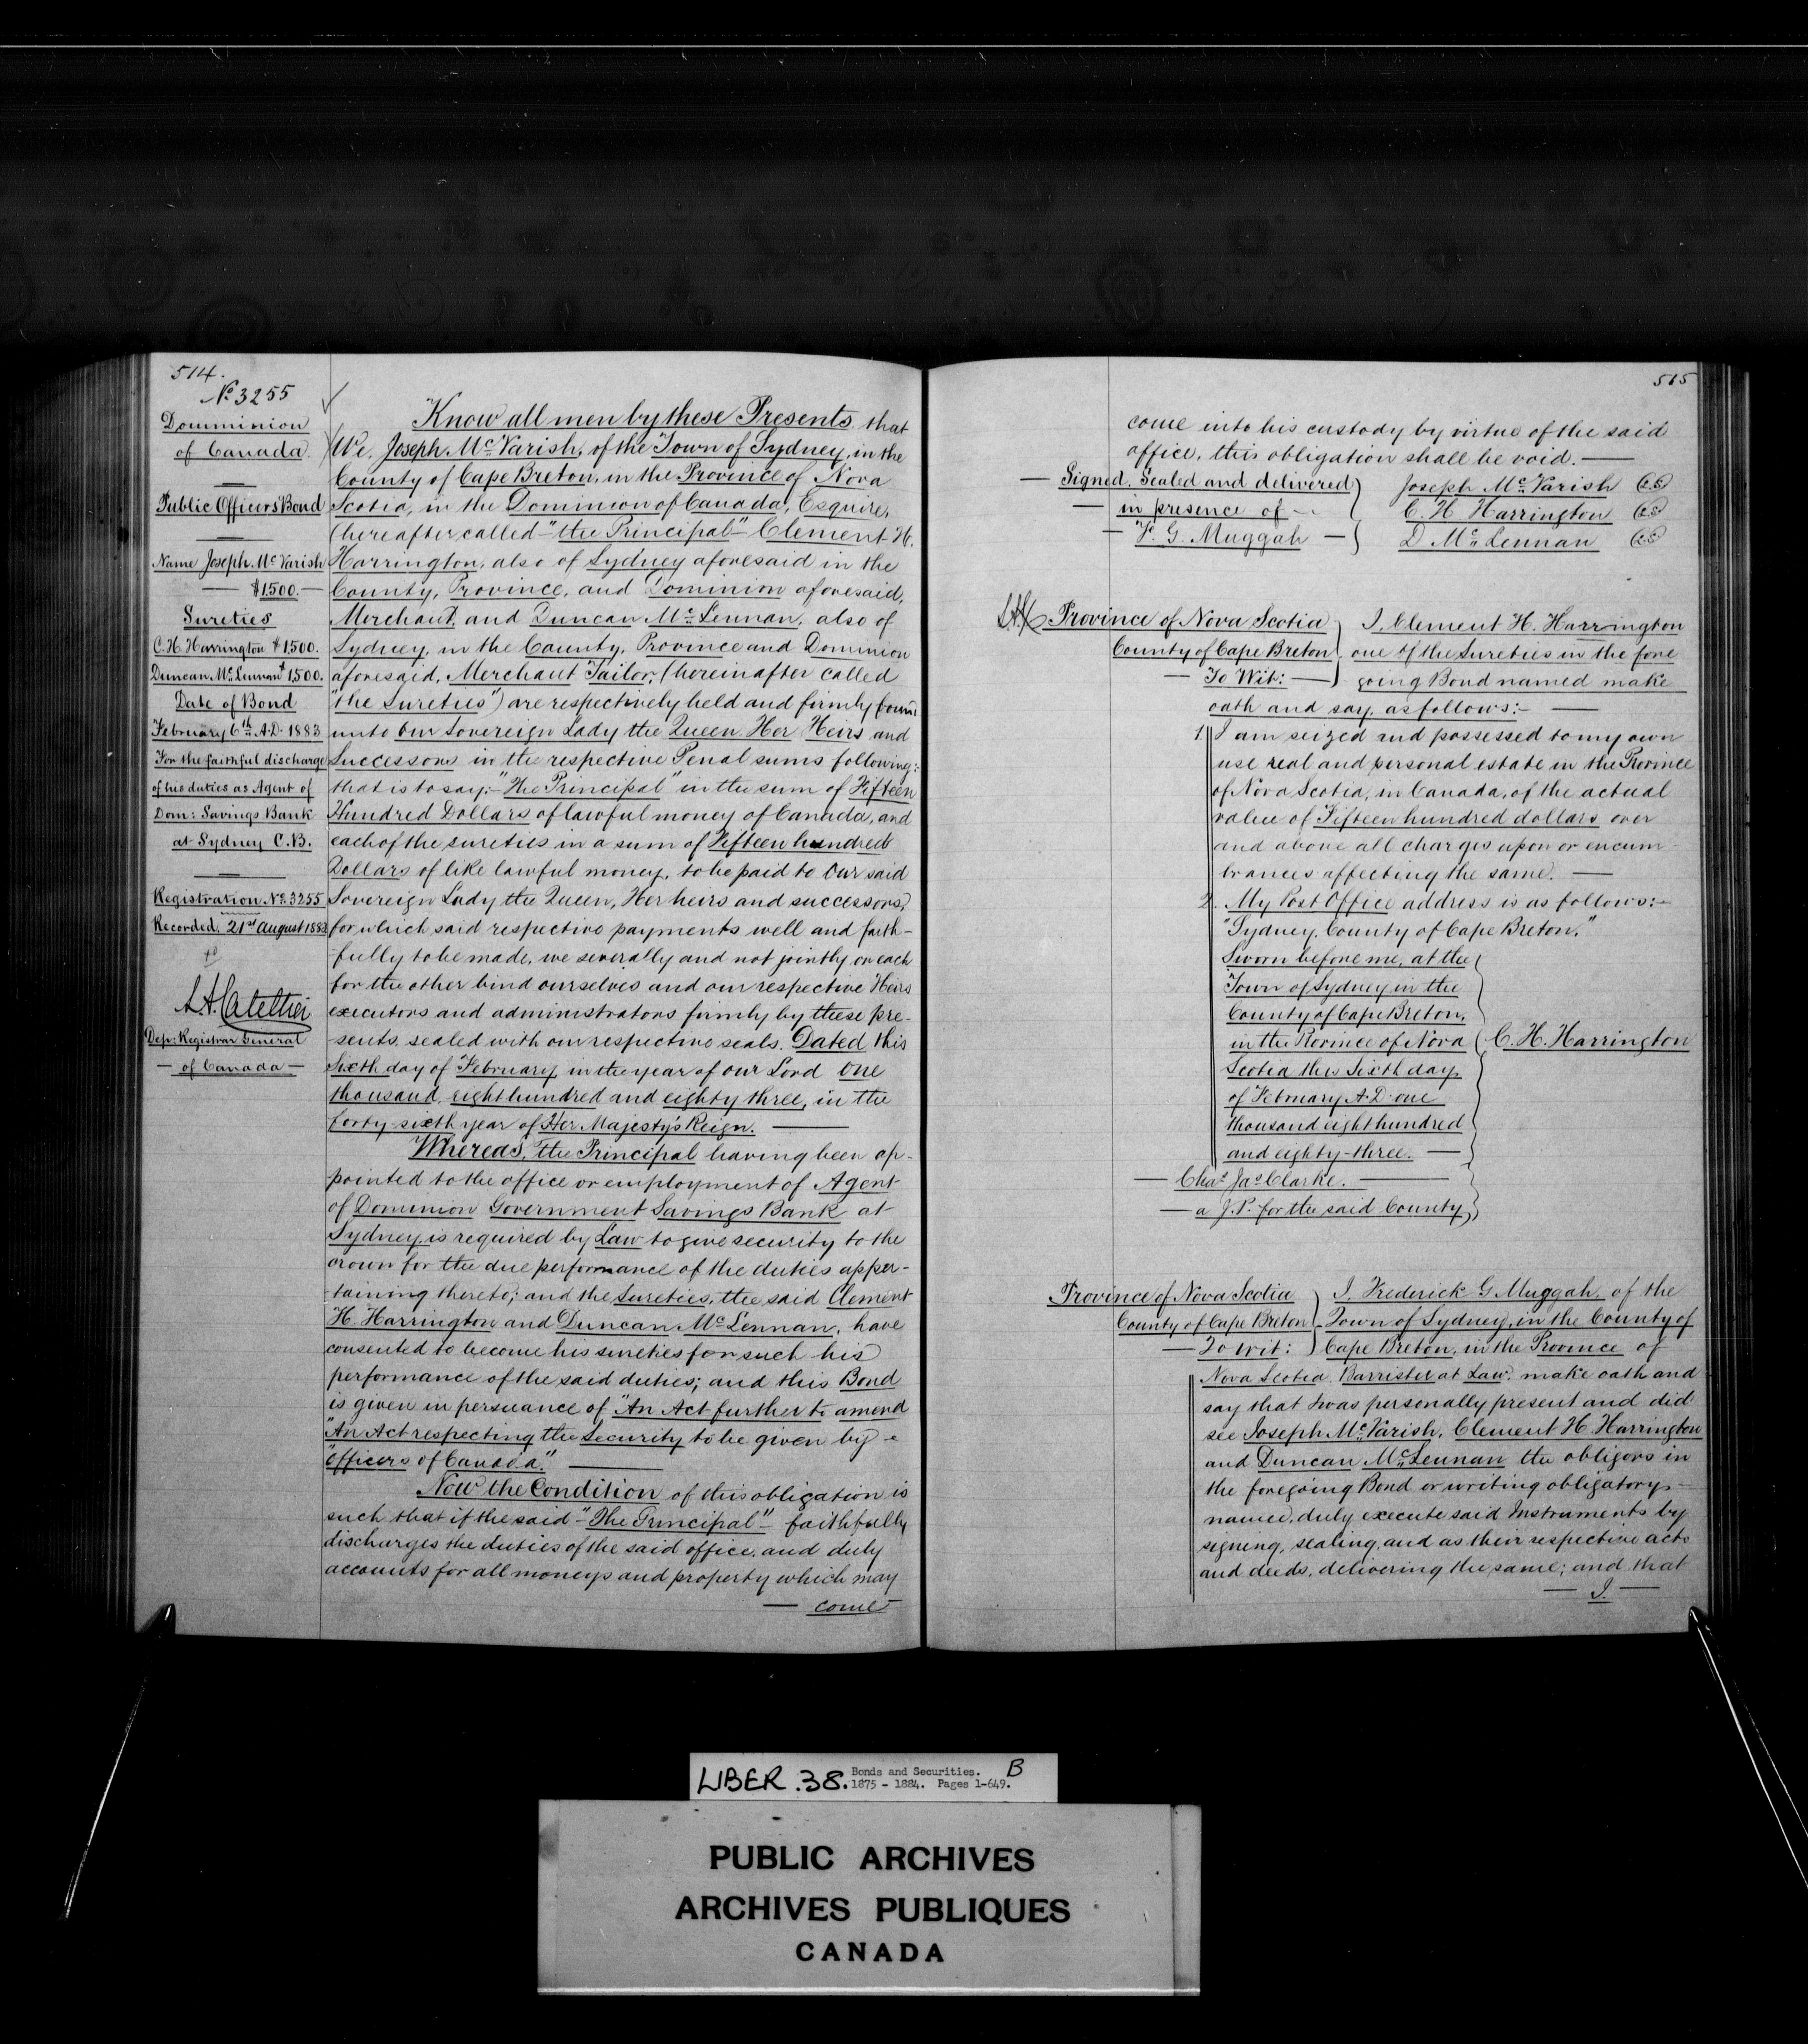 514.
No 3255
Douminion
of Canada.
Public Officers' Bond
Name Joseph. Mc Varish
$1500.
Sureties
C. H. Harrington $1,500.
Duncan Mc Lennan $1,500.
Date of Bond
February 6th A.D. 1883
For the faithful discharge
of his duties as Agent of
Dom: Savings Bank
at Sydney C.B.
Registration. No. 3255
Recorded. 21st August 1883
Dep: Registrar General
of Canada
Know all men by these Presents that
We, Joseph. Mc Varish, of the Town of Sydney, in the
County of Cape Breton, in the Province of Nova
Scotia, in the Dominion of Canada, Esquire,
(hereafter called "the Principal" Clement H.
Harrington, also of Sydney aforesaid in the
County, Province, and Dominion aforesaid,
Merchant, and Duncan Mc Lennan, also of
Sydney, in the County, Province and Dominion
aforesaid, Merchant Tailor, (hereinafter called
"the Sureties") are respectively held and firmly bound
unto Our Sovereign Lady the Queen, Her Heirs and
Successors in the respective Penal sums following:
that is to say:- "The Principal" in the sum of Fifteen
Hundred Dollars of lawful money of Canada, and
each of the sureties in a sum of Fifteen hundred
Dollars of like lawful money, to be paid to Our said
Sovereign Lady the Queen, Her heirs and successors,
for which said respective payments well and faith-
fully to be made, we severally and not jointly or each
for the other bind ourselves and our respective Heirs
executors and administrators firmly by these pre-
sents, sealed with our respective seals. Dated this
Sixth day of February in the year of our Lord one
thousand eight hundred and eighty three, in the
forty-sixth year of Her Majesty's Reign.
Whereas, the Principal having been ap-
pointed to the office or employment of Agent
of Dominion Government Savings Bank at
Sydney, is required by Law to give security to the
crown for the due performance of the duties apper-
taining thereto; and the Sureties, the said Clement
H. Harrington and Duncan Mc Lennan, have
consented to become his sureties for such his
performance of the said duties; and this Bond
is given in persuance of "An Act further to amend
"An Act respecting the Security to be given by
"Officers of Canada."
Now the Condition of this obligation is
such that if the said "The Principal" faithfully
discharges the duties of the said office, and duly
accounts for all moneys and property which may
come
515
come into his custody by virtue of the said
office, this obligation shall be void.
Signed, Sealed and delivered
in presence of
F. G. Muggah
Joseph Mc Varish (L.S)
C. H Harrington (L.S)
D Mc Lennan (L.S)
Province of Nova Scotia
County of Cape Breton
To Wit:
I, Clement H. Harrington
one of the Sureties in the fore
going Bond named make
oath and say, as follows:-
1. I am seized and possessed to my own
use real and personal estate in the Province
of Nova Scotia, in Canada, of the actual
value of Fifteen hundred dollars over
and above all charges upon or encum-
brances affecting the same.
2. My Post Office address is as follows:-
"Sydney, County of Cape Breton."
Sworn before me, at the
Town of Sydney in the
County of Cape Breton,
in the Province of Nova
Scotia this Sixth day
of February A.D. one
thousand eight hundred
and eighty-three.
C. H. Harrington
Chas Jas Clarke.
a J.P. for the said County,
Province of Nova Scotia
County of Cape Breton
To wit:
I, Frederick G Muggah, of the
Town of Sydney, in the County of
Cape Breton, in the Province of
Nova Scotia, Barrister at Law, make oath and
say that I was personally present and did
see Joseph Mc Varish, Clement H. Harrington
and Duncan Mc Lennan the obligors in
the foregoing Bond or writing obligatory
named, duly execute said Instruments by
signing, sealing, and as their respective acts
and deeds, delivering the same; and that
I.
LIBER .38.
Bonds and Securities. B
1875 - 1884. Pages 1-649.
PUBLIC ARCHIVES
ARCHIVES PUBLIQUES
CANADA